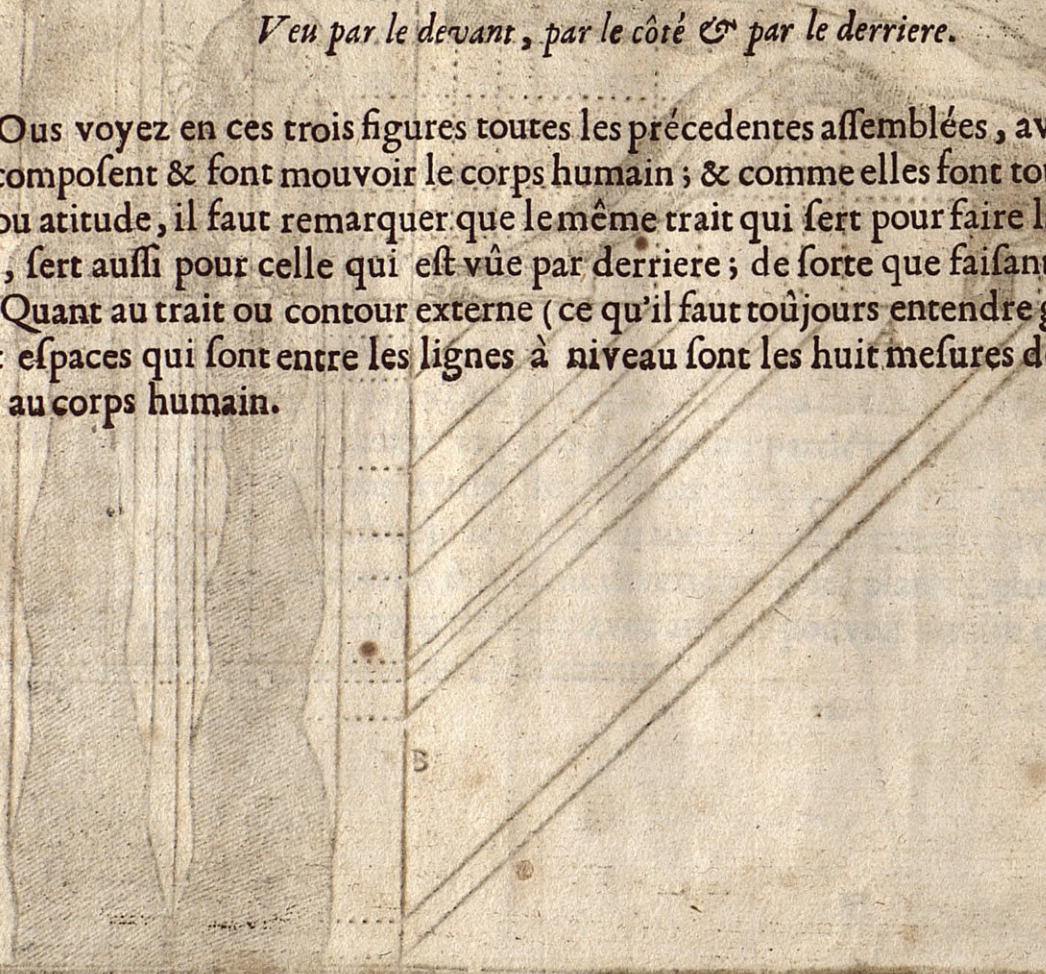 Veu par le devant, par le côté & par le derriere.
Ous voyez en ces trois figures toutes les précedentes assemblées, av
composent & font mouvoir le corps humain; & comme elles font tou
ou atitude, il faut remarquer que le même trait qui sert pour faire l
, sert aussi pour celle qui est vûe par derriere; de sorte que faisant
Quant au trait ou contour externe (ce qu'il faut toûjours entendre g
espaces qui sont entre les lignes à niveau sont les huit mesures d
au corps humain.
B